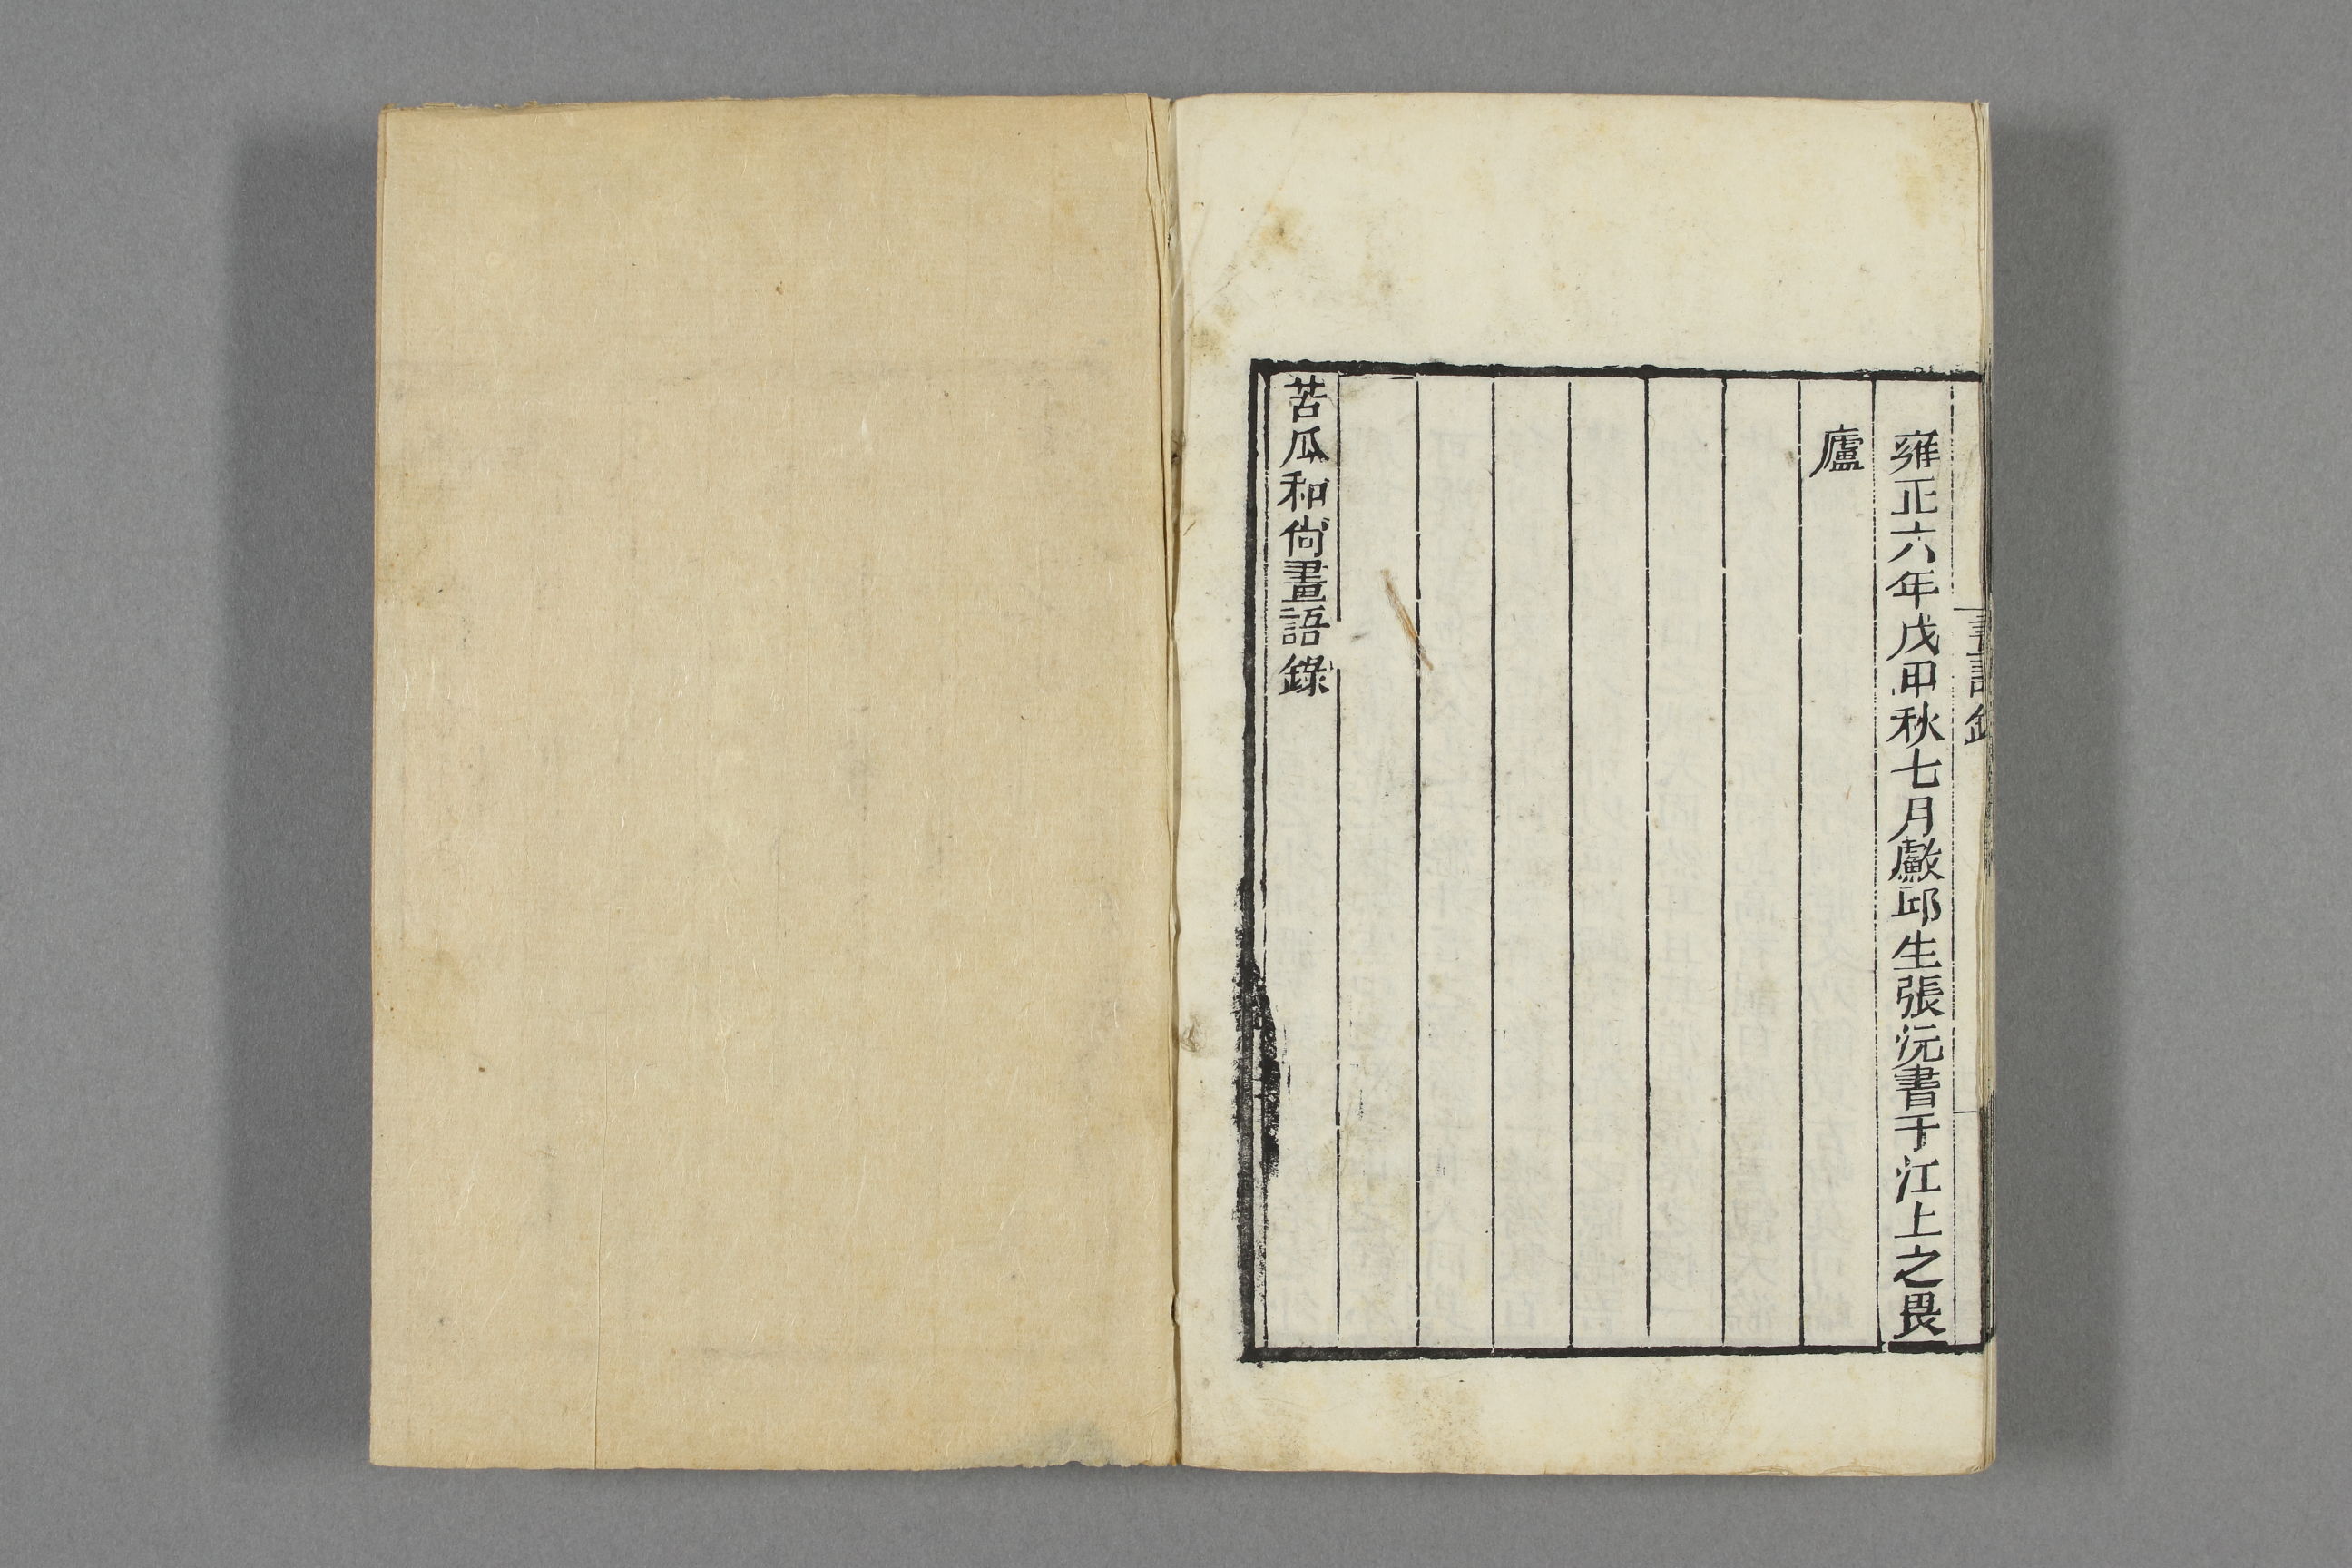 畫語錄
雍正六年戊申秋七月歔邱生張沅書于江上之畏
廬
苦瓜和尙畫語錄